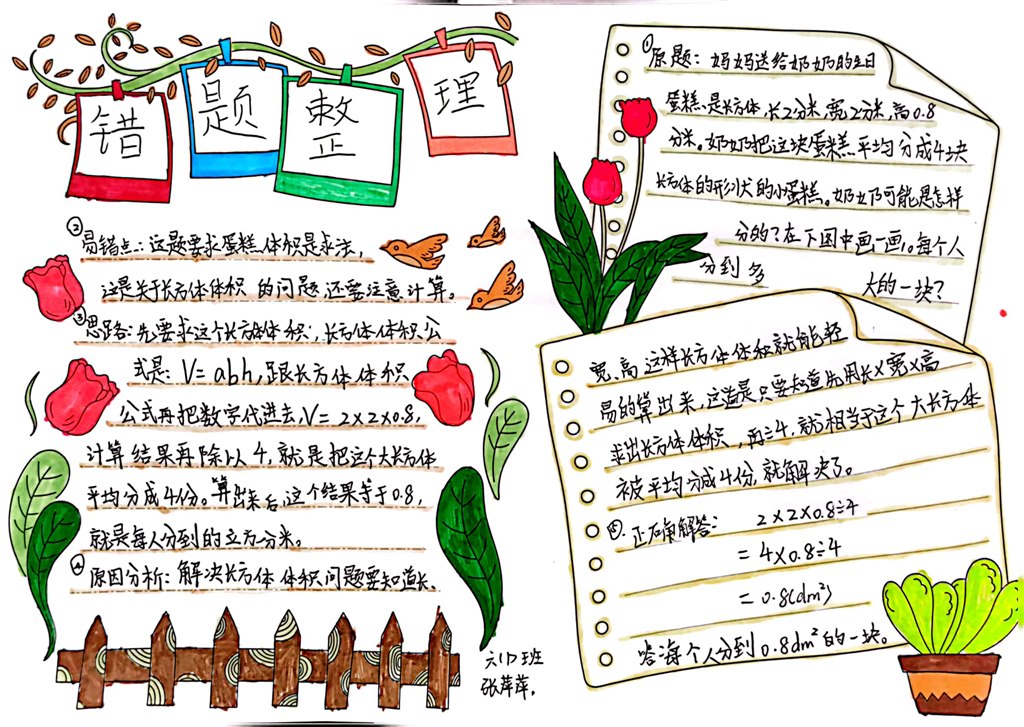 错题整理
①原题：妈妈送给奶奶的生日
蛋糕是长方体，长2分米，宽2分米，高0.8
分米。奶奶把这块蛋糕平均分成4块
长方体的形状的小蛋糕。奶奶可能是怎样
分的？在下图中画一画。每个人
分到多大的一块？
②易错点：这题要求蛋糕体积是求法，
这是关于长方体体积的问题还要注意计算。
③思路：先要求这个长方体体积；长方体体积公
式是：V=abh，跟长方体体积
公式再把数字代进去，V=2×2×0.8，
计算结果再除以4，就是把这个大长方体
平均分成4份。算出来后，这个结果等于0.8，
就是每人分到的立方分米。
④原因分析：解决长方体体积问题要知道长、
宽、高，这样长方体体积就能轻
易的算出来，这道是只要知道先用长×宽×高
求出长方体体积，再÷4，就相当于这个大长方体
被平均分成4份，就解决了。
正确解答：2×2×0.8÷4
=4×0.8÷4
=0.8(dm³)
答：每个人分到0.8dm³的一块。
六(1)班
张萍萍。